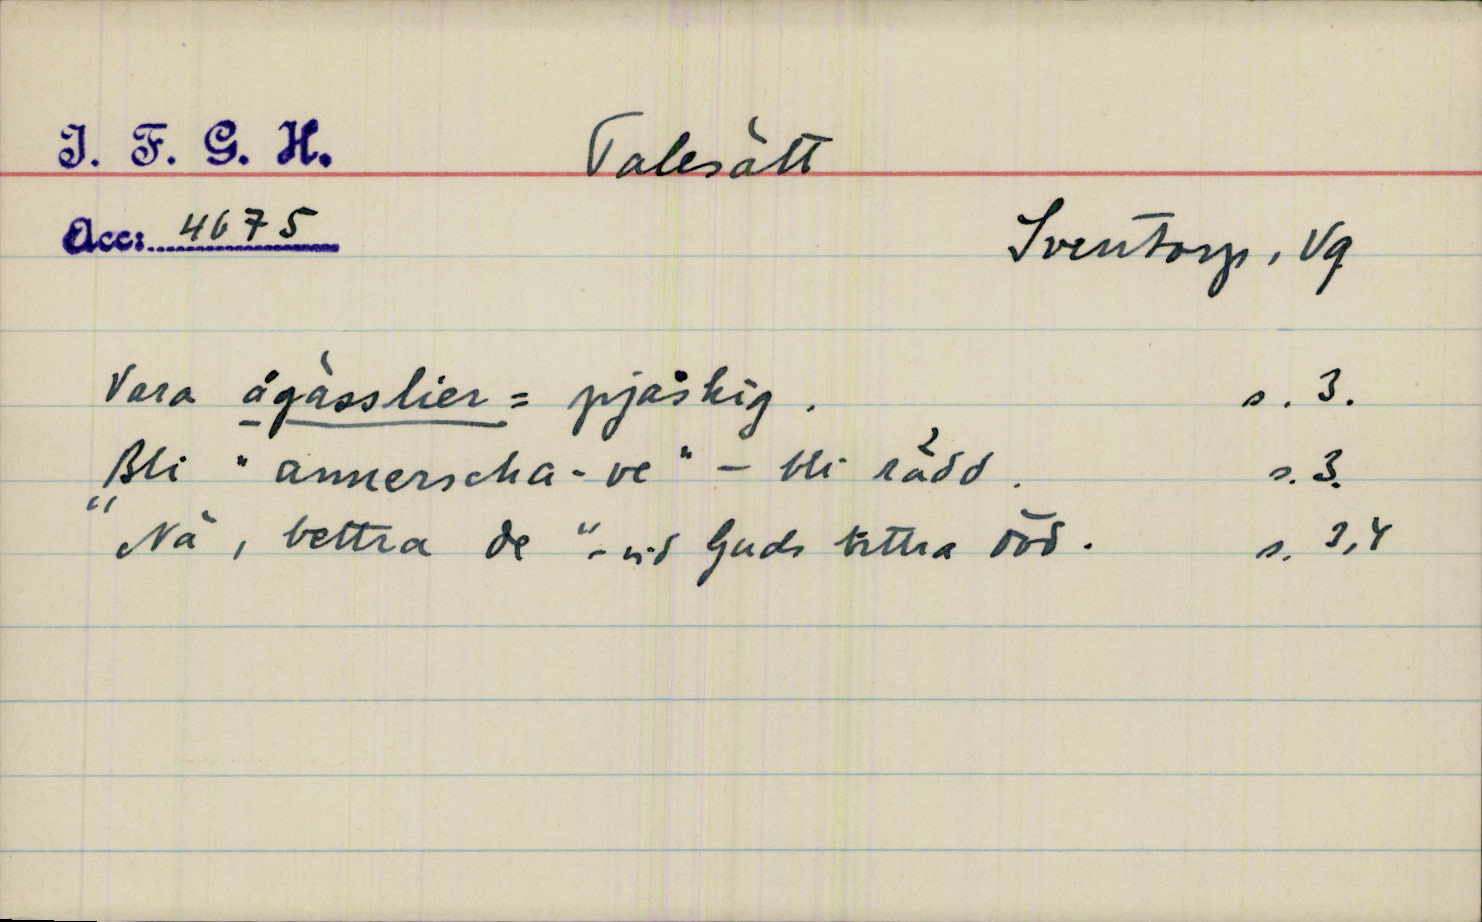 I. F. G. H.
Talesätt
Acc: 4675
Sventorp, Vg
Vara ågässlier = pjåskig. s. 3.
Bli "annerscha-ve" - bli rädd. s. 3.
"Nä, bettra de" - vid Guds bittra död. s. 3,4